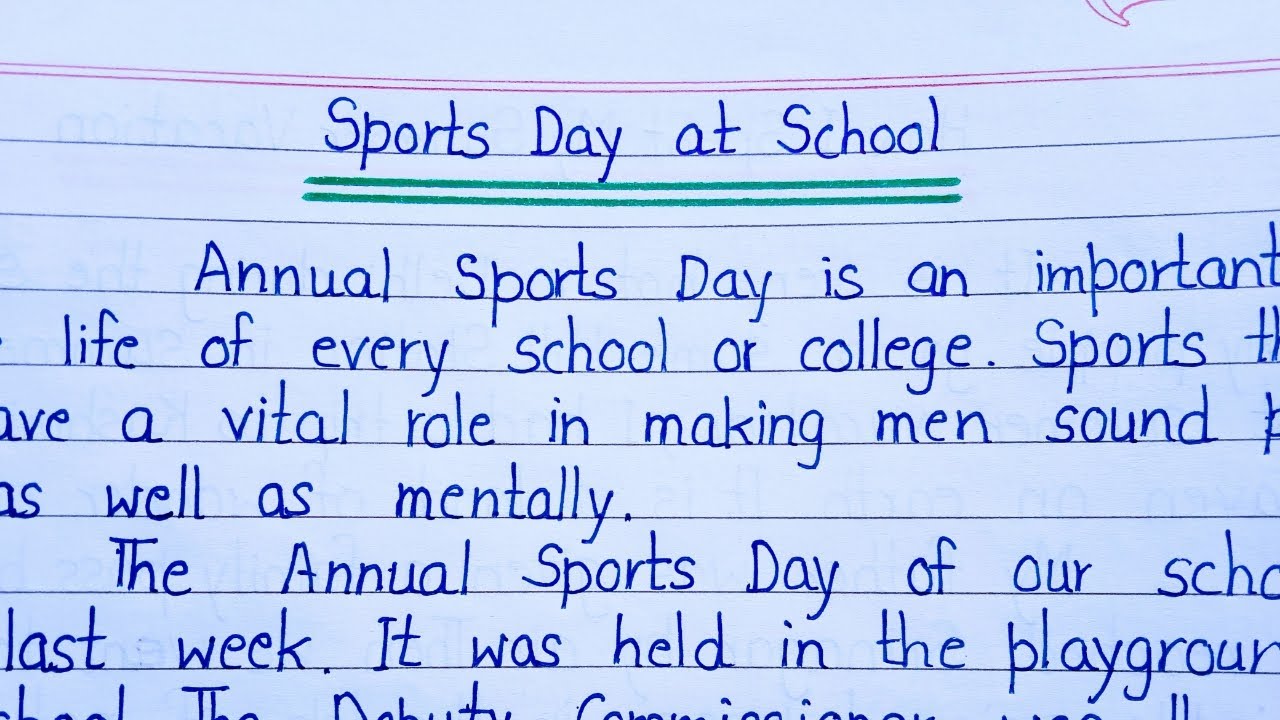 Sports Day at School
Annual Sports Day is an important
life of every school or college. Sports
a vital role in making men sound
as well as mentally.
The Annual Sports Day of our
last week. It was held in the
The Deputy Commissioner